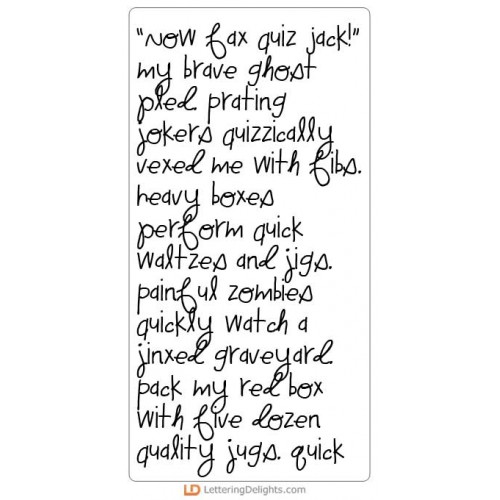 "Now fax quiz jack!"
my brave ghost
pled. prating
jokers quizzically
vexed me with fibs.
heavy boxes
perform quick
waltzes and jigs.
painful zombies
quickly watch a
jinxed graveyard.
pack my red box
with five dozen
quality jugs. quick
LD LetteringDelights.com